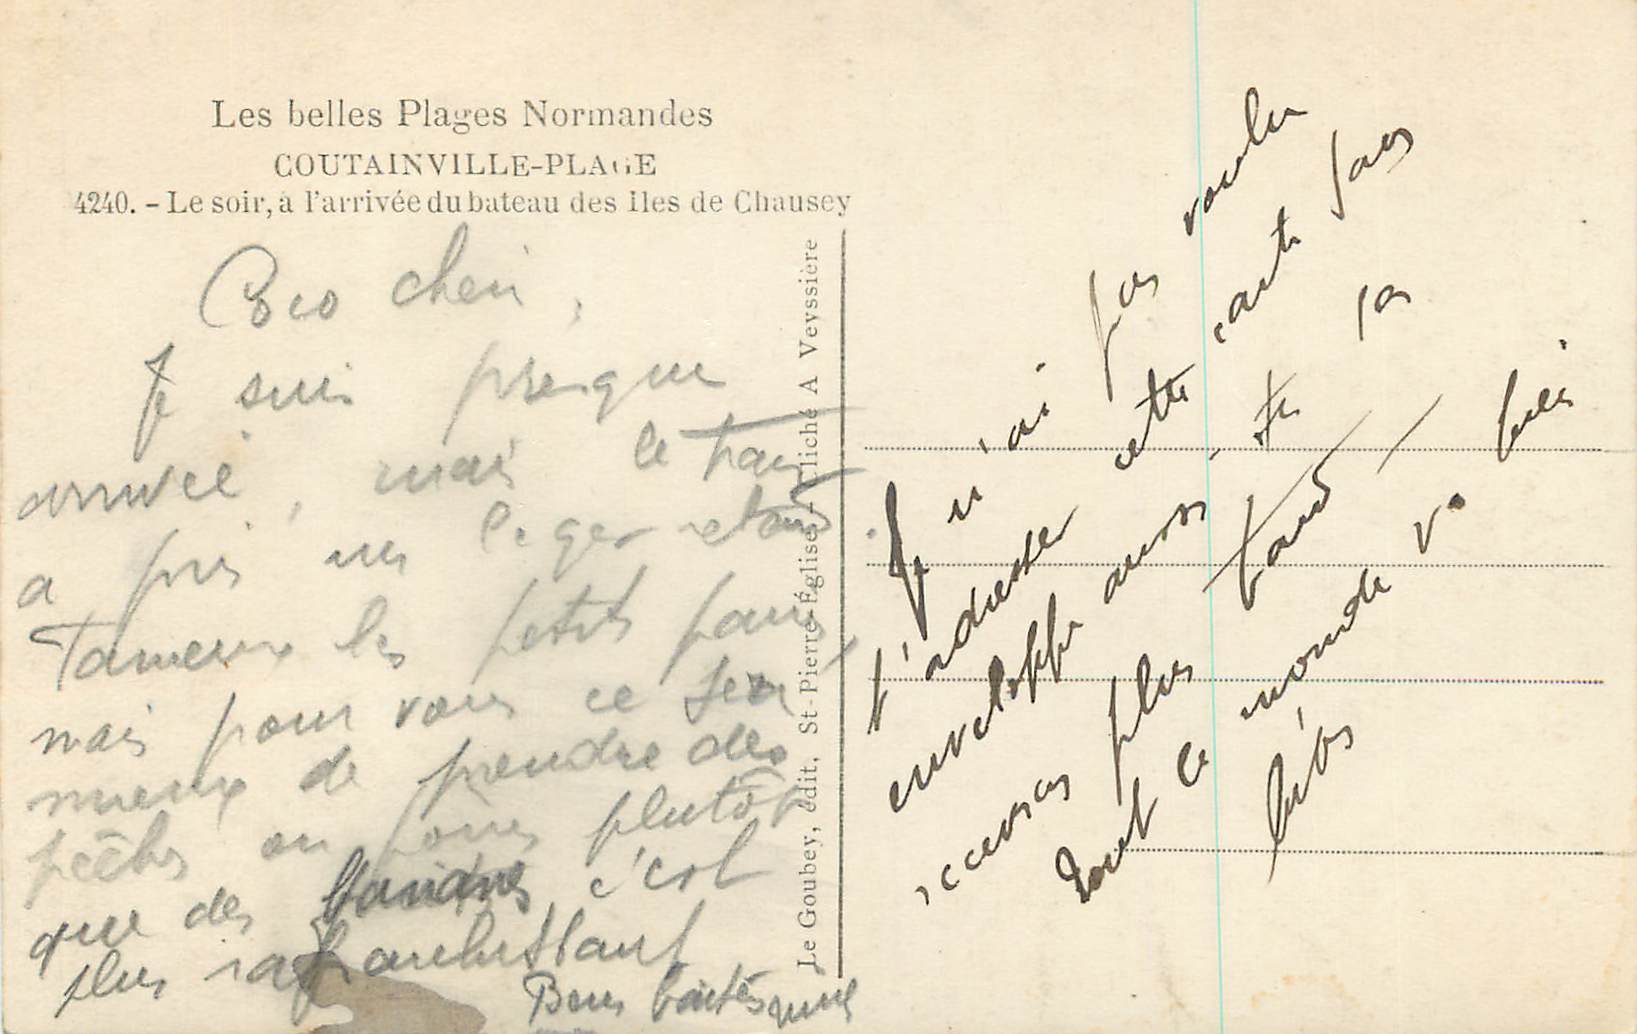 Les belles Plages Normandes
COUTAINVILLE-PLAGE
4240. - Le soir, à l'arrivée du bateau des Iles de Chausey
Coco cheri,
Je suis presque
arrivée, mais le train
a pris un leger retard
les petits pains
mais pour vous ce sera
mieux de prendre des
pêches ou poires plutôt
que des bananes c'est
plus rafraichissant
Bons baisers
Le Goubey, édit, St-Pierre-Église - Cliché A Veyssière
Je n'ai pas voulu
t'adresser cette carte sans
enveloppe aussi, tu la
recevras plus tard -
Tout le monde va bien.